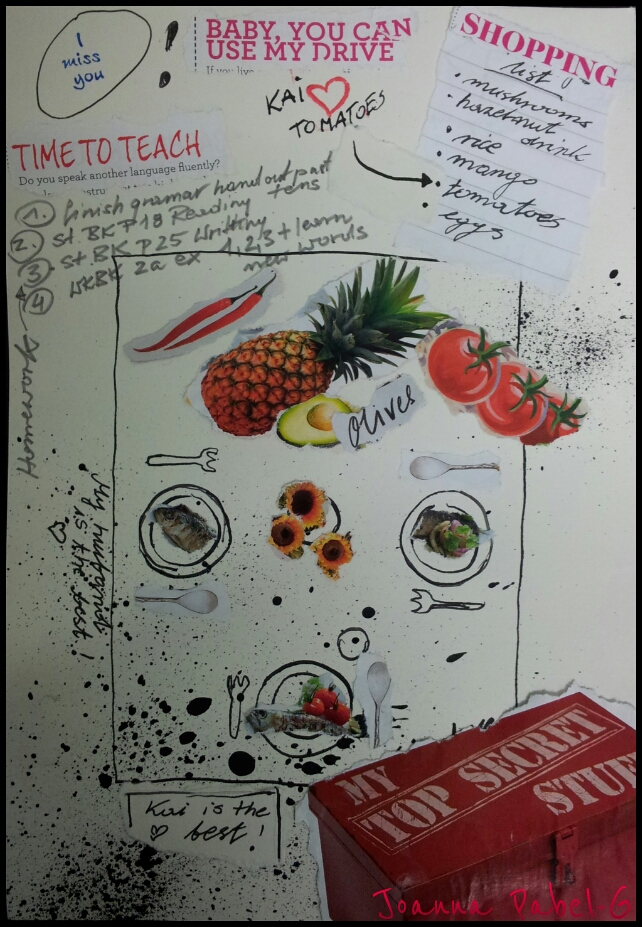 I
miss
you
!
BABY, YOU CAN
USE MY DRIVE
If you live
KAI
TOMATOES
SHOPPING
list
• mushrooms
• hazelnut drink
• rice
• mango
• tomatoes
• eggs
TIME TO TEACH
Do you speak another language fluently?
1. finish gramar handout past tens
2. St. BK P 18 Reading
3. St BK P 25 Writting
4 WKBK 2a ex 1,2,3 + learn
new words
Homework
Olives
is the best!
Kai is the
best!
MY
TOP SECRET
STUF
Joanna Pabel-G